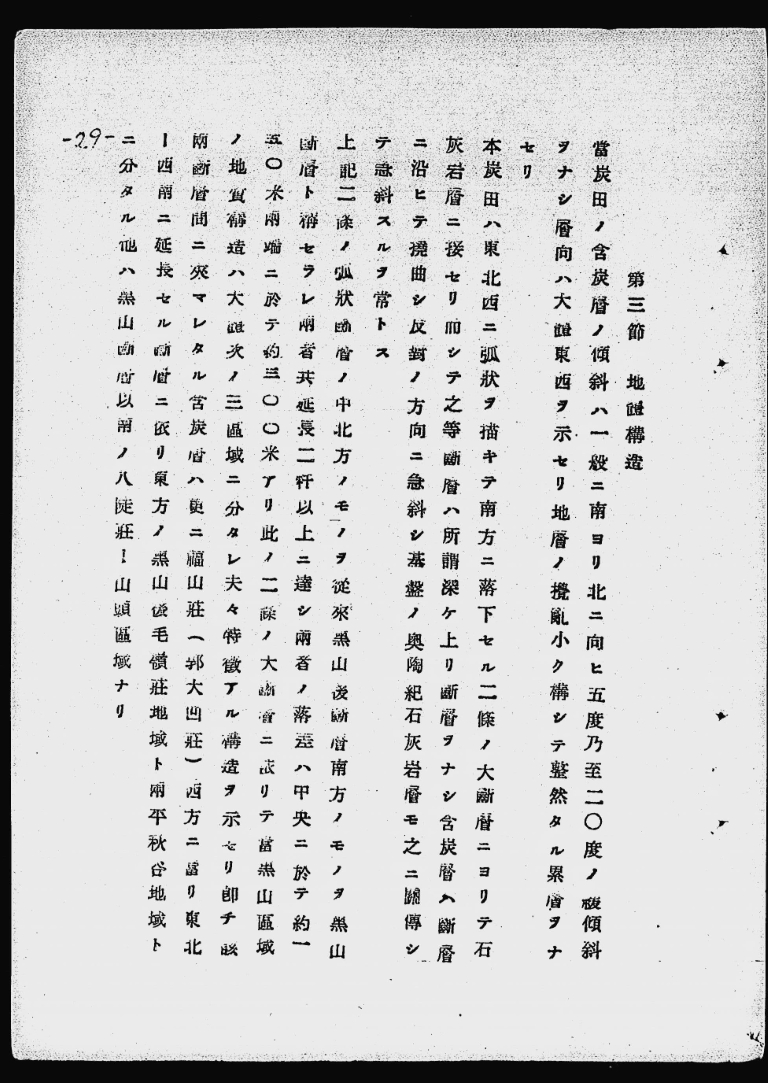 第三節 地體構造
當炭田ノ含炭層ノ傾斜ハ一般ニ南ヨリ北ニ向ヒ五度乃至二〇度ノ緩傾斜
ヲナシ層向ハ大體東西ヲ示セリ地層ノ攪亂小ク構シテ整然タル累層ヲナ
セリ
本炭田ハ東北西ニ弧狀ヲ描キテ南方ニ落下セル二條ノ大斷層ニヨリテ石
灰岩層ニ接セリ而シテ之等斷層ハ所謂深ケ上リ斷層ヲナシ含炭層ハ斷層
ニ沿ヒテ撓曲シ反對ノ方向ニ急斜シ基盤ノ奥陶紀石灰岩層モ之ニ傳シ
テ急斜スルヲ常トス
上記二條ノ弧狀斷層ノ中北方ノモノヲ從來黑山後斷層南方ノモノヲ黑山
斷層ト稱セラレ兩者共延長二粁以上ニ達シ兩者ノ落差ハ中央ニ於テ約一
五〇米兩端ニ於テ約三〇〇米アリ此ノ二條ノ大斷層ニ依リテ當黑山區域
ノ地質構造ハ大體次ノ三區域ニ分タレ夫々特徵アル構造ヲ示セリ卽チ該
兩斷層間ニ夾マレタル含炭層ハ更ニ福山莊(郭大凹莊)西方ニ當リ東北
ー西南ニ延長セル斷層ニ依リ東方ノ黑山後毛嶺莊地域ト兩平秋谷地域ト
ニ分タル他ハ黑山斷層以南ノ八陡莊ー山頭區域ナリ
-29-